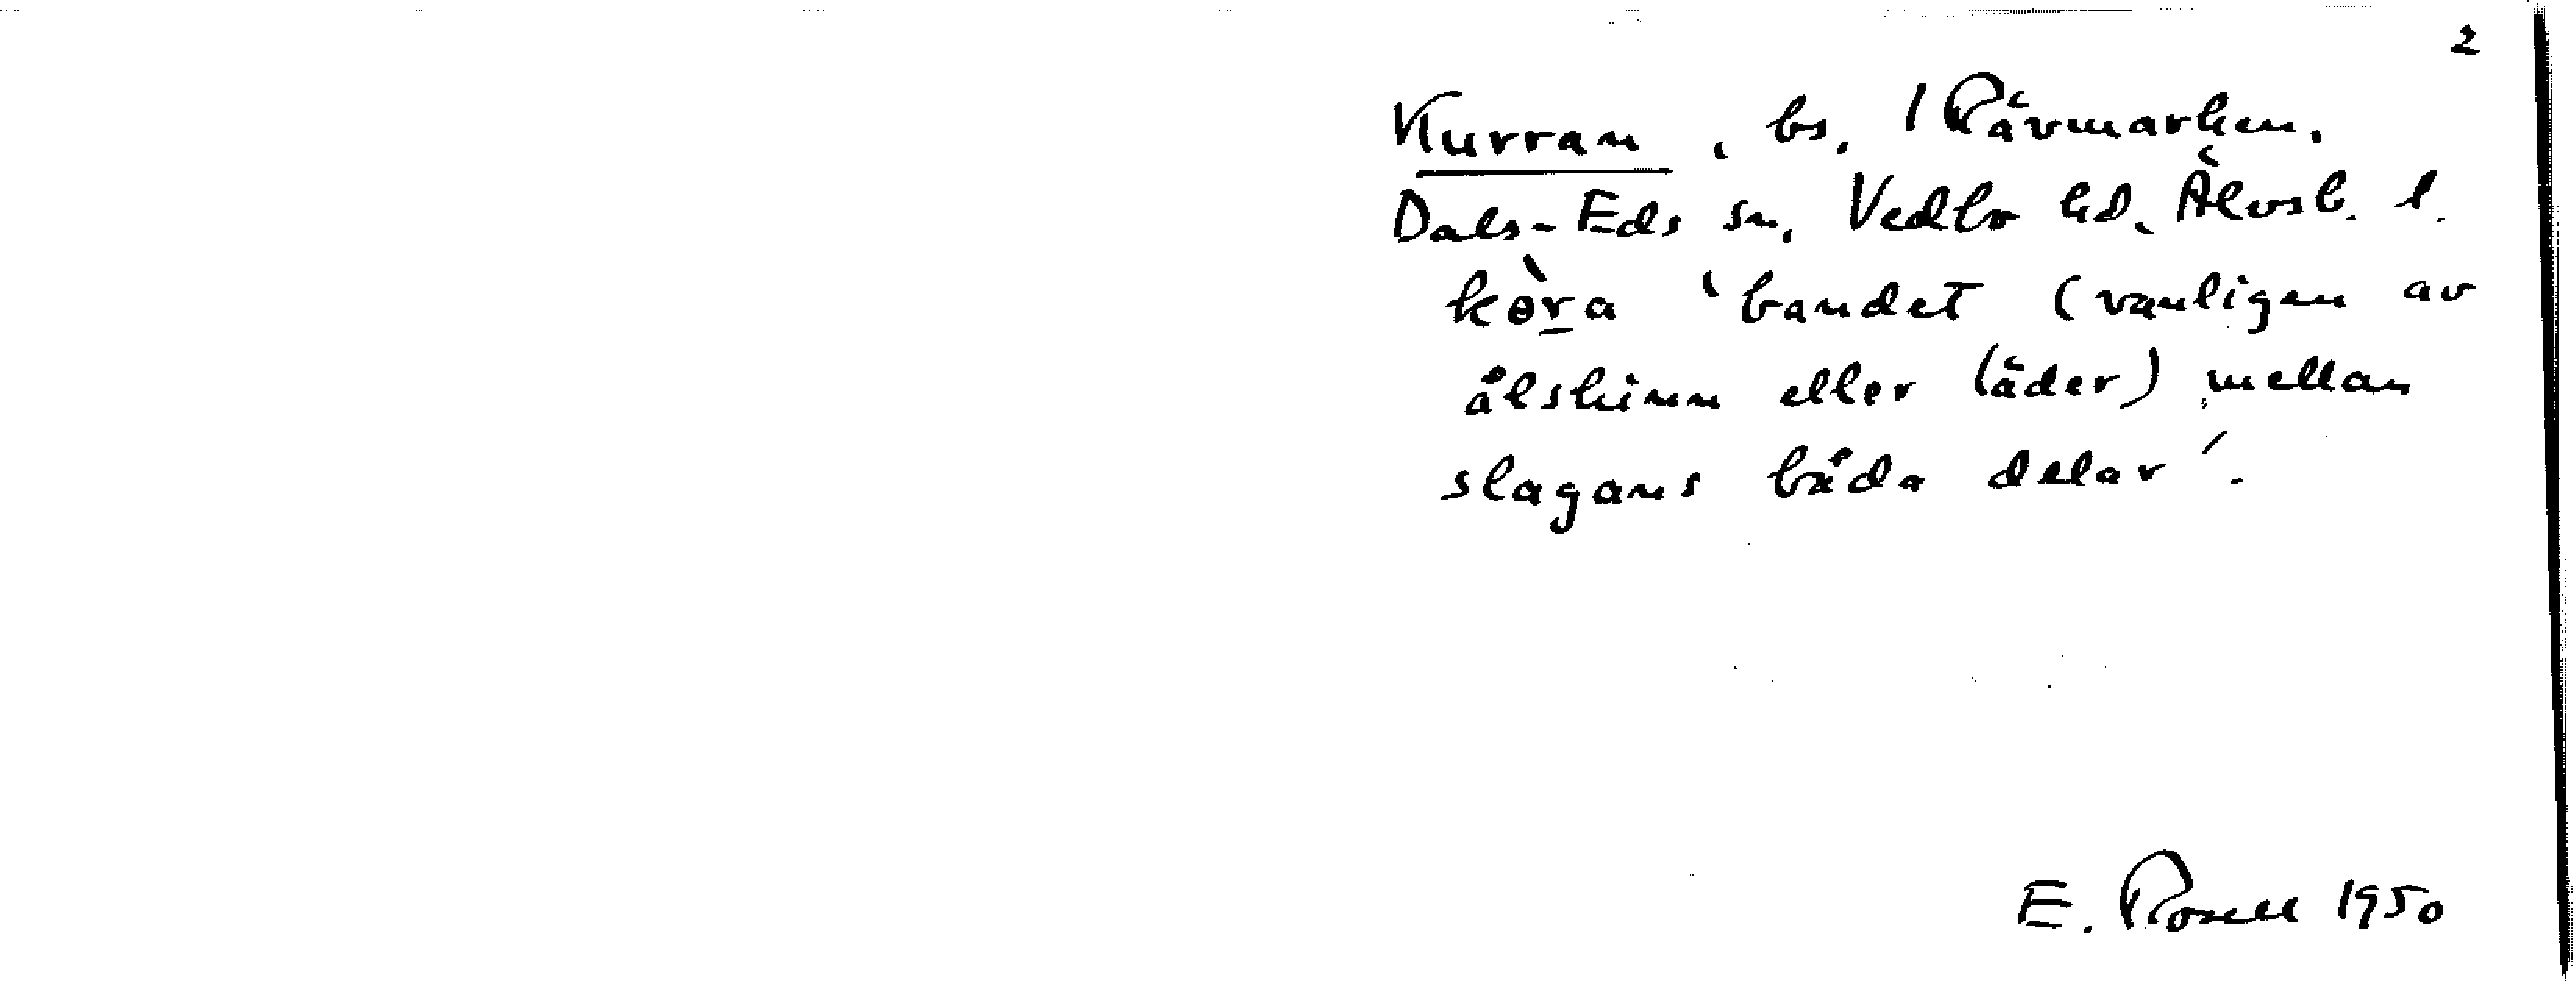 2
Kurran, bs. 1 Rävmarken.
Dals-Eds sn. Vedbo hd. Älvsb. l.
kɵ̀r̲a ‘bandet (vanligen av
ålskinn eller läder) mellan
slagans båda delar’.
E. Rosell 1950